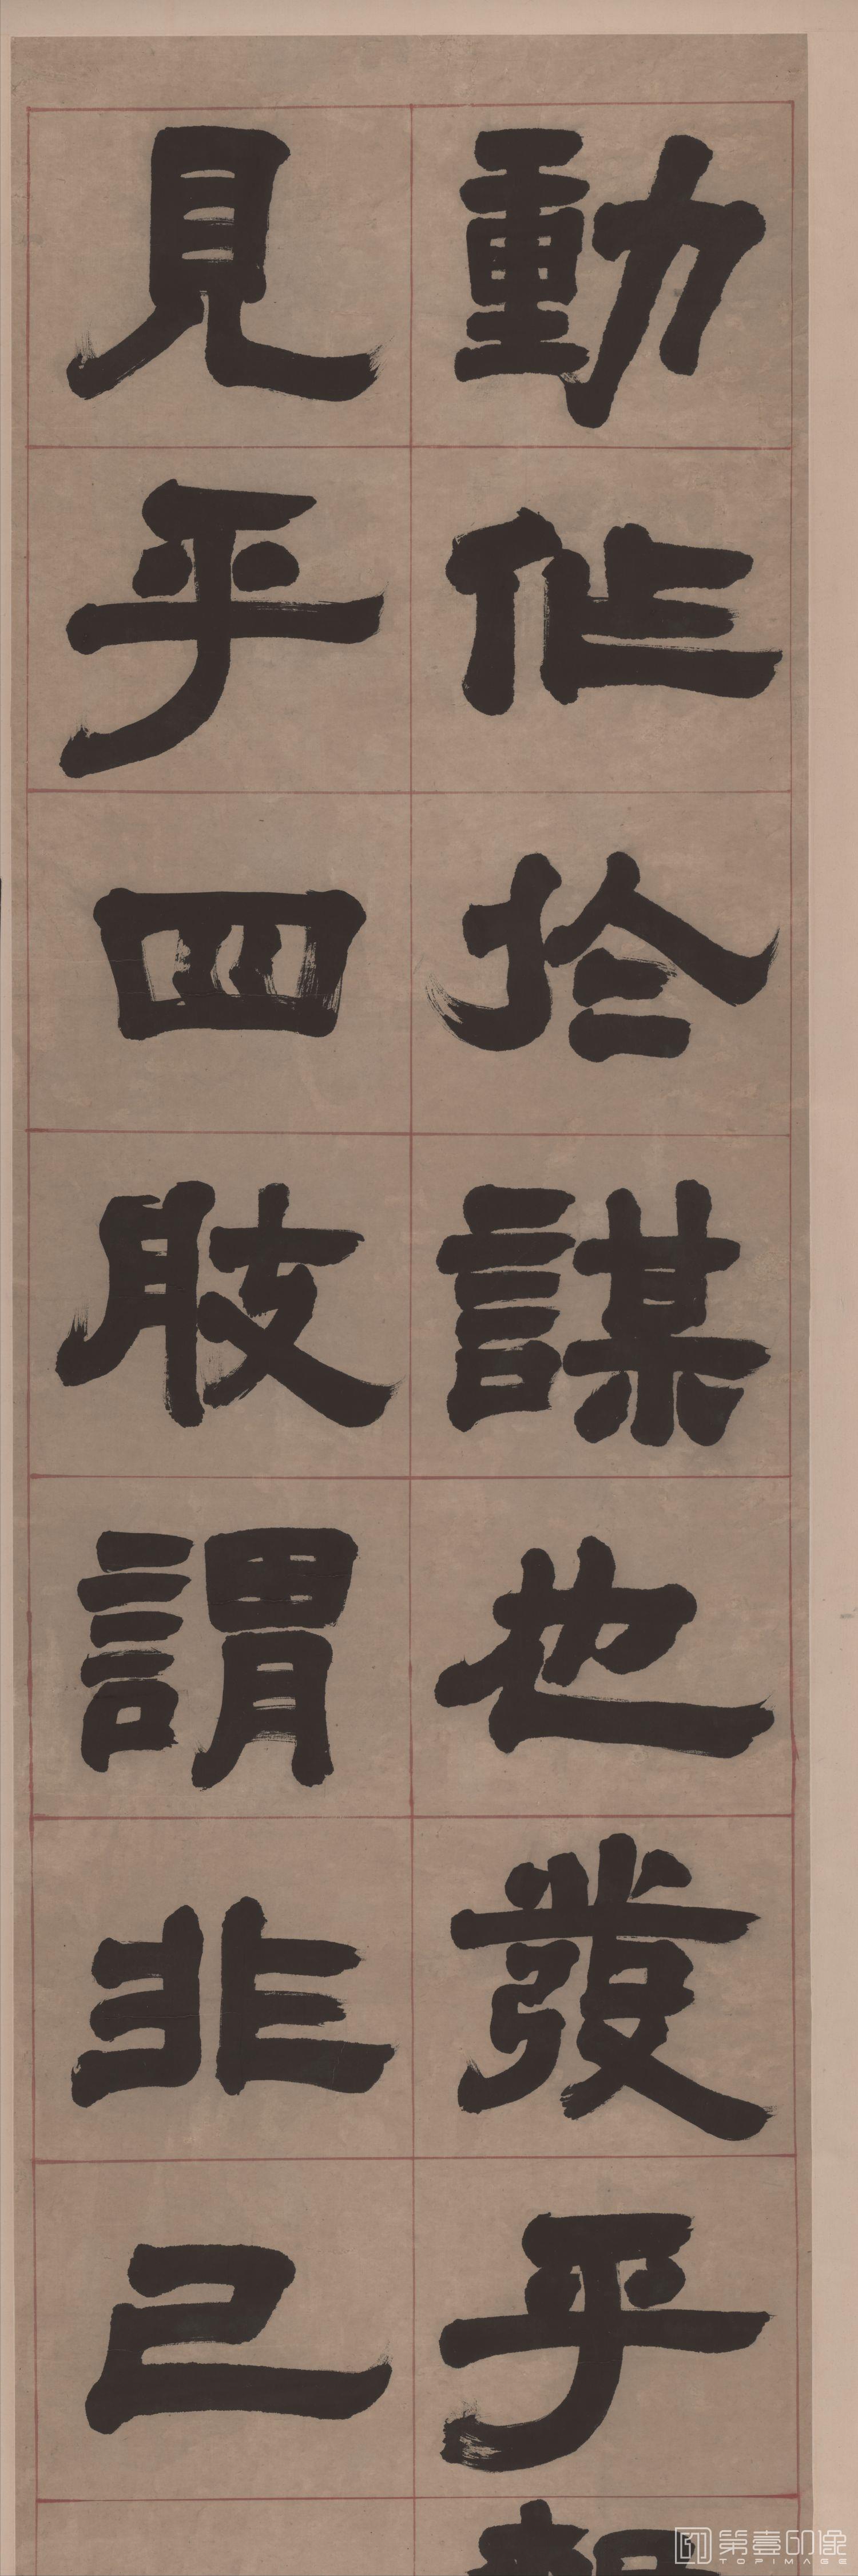 動作於謀也發乎
見乎四肢謂非己
第壹印像
TOPIMAGE